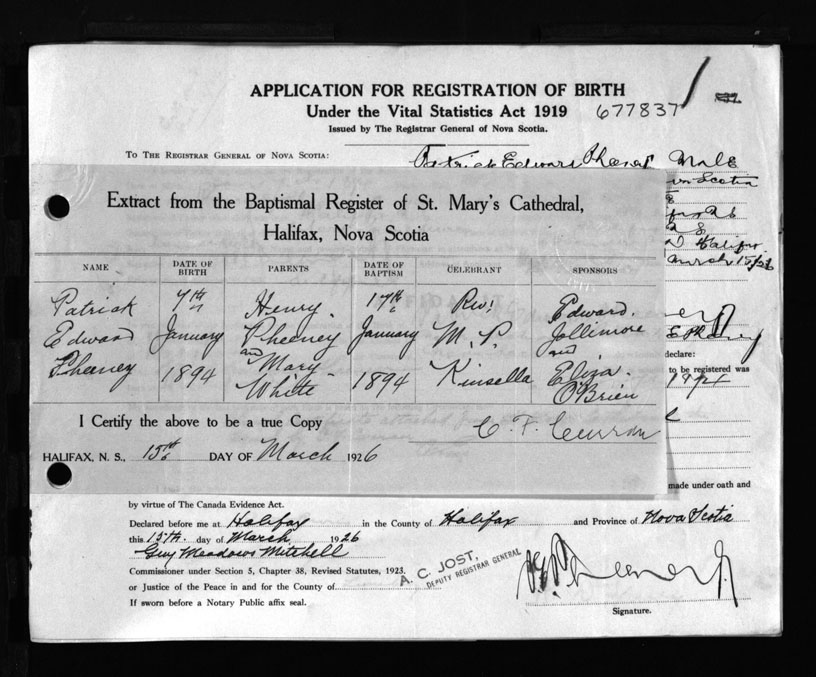 APPLICATION FOR REGISTRATION OF BIRTH
Under the Vital Statistics Act 1919
677837
Issued by The Registrar General of Nova Scotia.
TO THE REGISTRAR GENERAL OF NOVA SCOTIA:
Patrick Edward Male
Scotia
Extract from the Baptismal Register of St. Mary's Cathedral,
Halifax, Nova Scotia
Halifax
March 15/26
NAME DATE OF BIRTH PARENTS DATE OF BAPTISM CELEBRANT SPONSORS
Patrick 7th Henry 17th Rev. Edward
Edward January Pheeney January M. P. Jollimore
and and
Pheeney 1894 Mary 1894 Kinsella Eliza
White O'Brien
declare:
to be registered was
I Certify the above to be a true Copy
C. F. Curran
HALIFAX, N. S., 15th DAY OF March 1926
made under oath and
by virtue of The Canada Evidence Act.
Declared before me at Halifax in the County of Halifax and Province of Nova Scotia
this 15th. day of March 1926
Guy Meadows Mitchell
Commissioner under Section 5, Chapter 38, Revised Statutes, 1923.
or Justice of the Peace in and for the County of
If sworn before a Notary Public affix seal.
A. C. JOST,
DEPUTY REGISTRAR GENERAL
Signature.